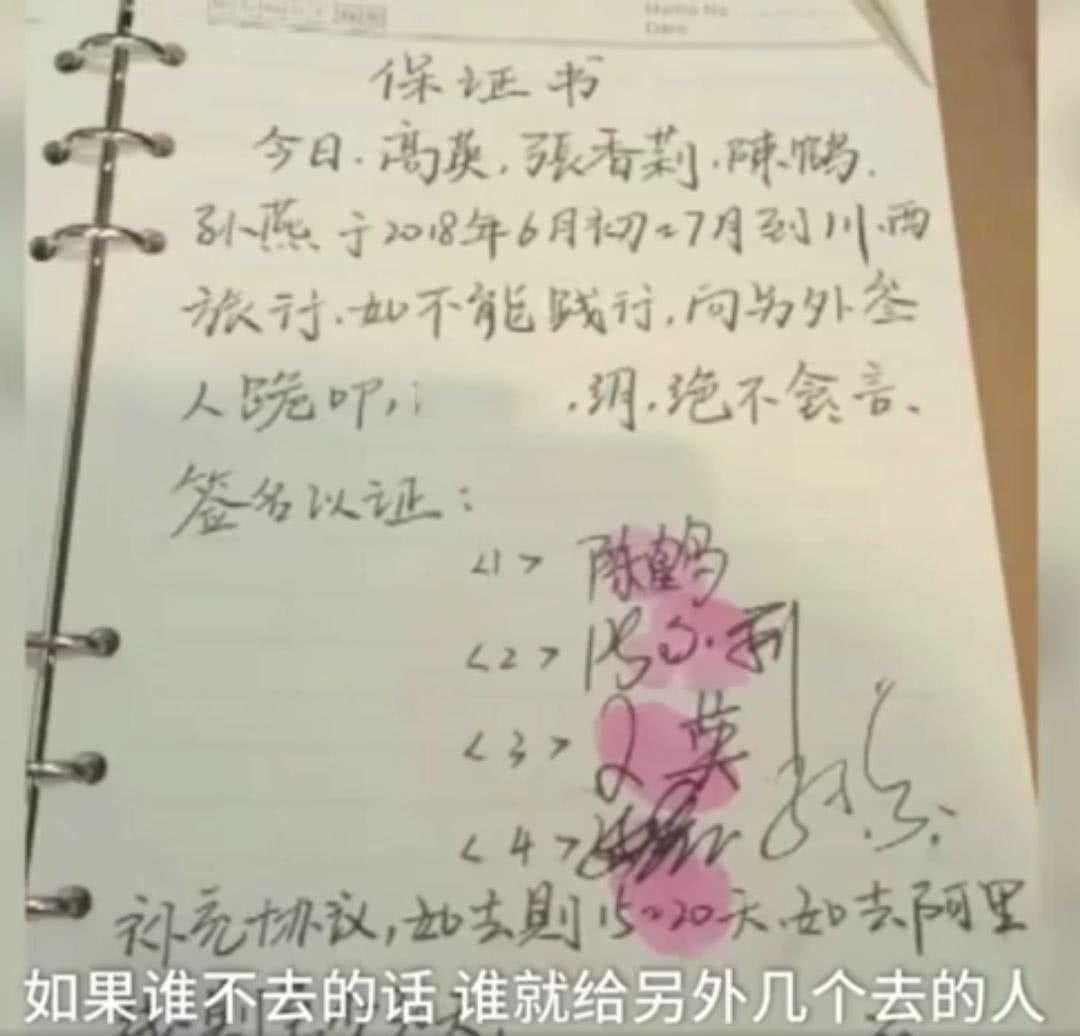 Memo No
Date
保证书
今日.高英.張香莉.陳鹤.
孙燕于2018年6月初~7月到川西
旅行.如不能践行.向另外叁
人跪叩, .绝不食言.
签名以证:
<1> 陈鹤
<2>
<3> 英
<4>
补充协议,如去則15~20天.如去阿里
如果谁不去的话 谁就给另外几个去的人